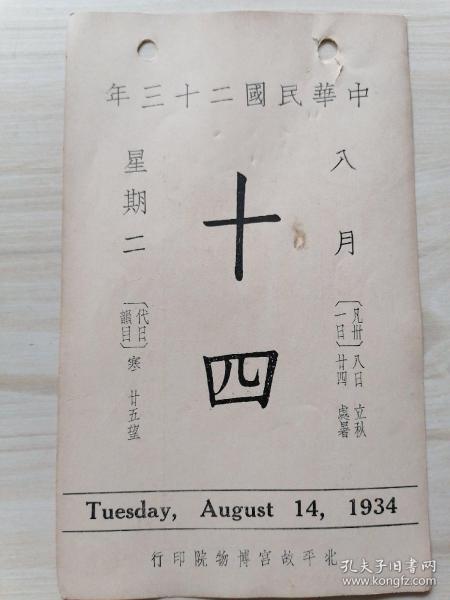 中華民國二十三年
八月
十四
星期二
〔凡卅一日〕
八日 立秋
廿四 處暑
〔代日韻目〕
寒 廿五望
Tuesday, August 14, 1934
北平故宮博物院印行
孔夫子旧书网
www.kongfz.com